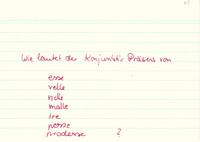 Wie lautet der Konjunktiv Präsens von
esse
velle
nolle
malle
ire
posse
prodesse ?